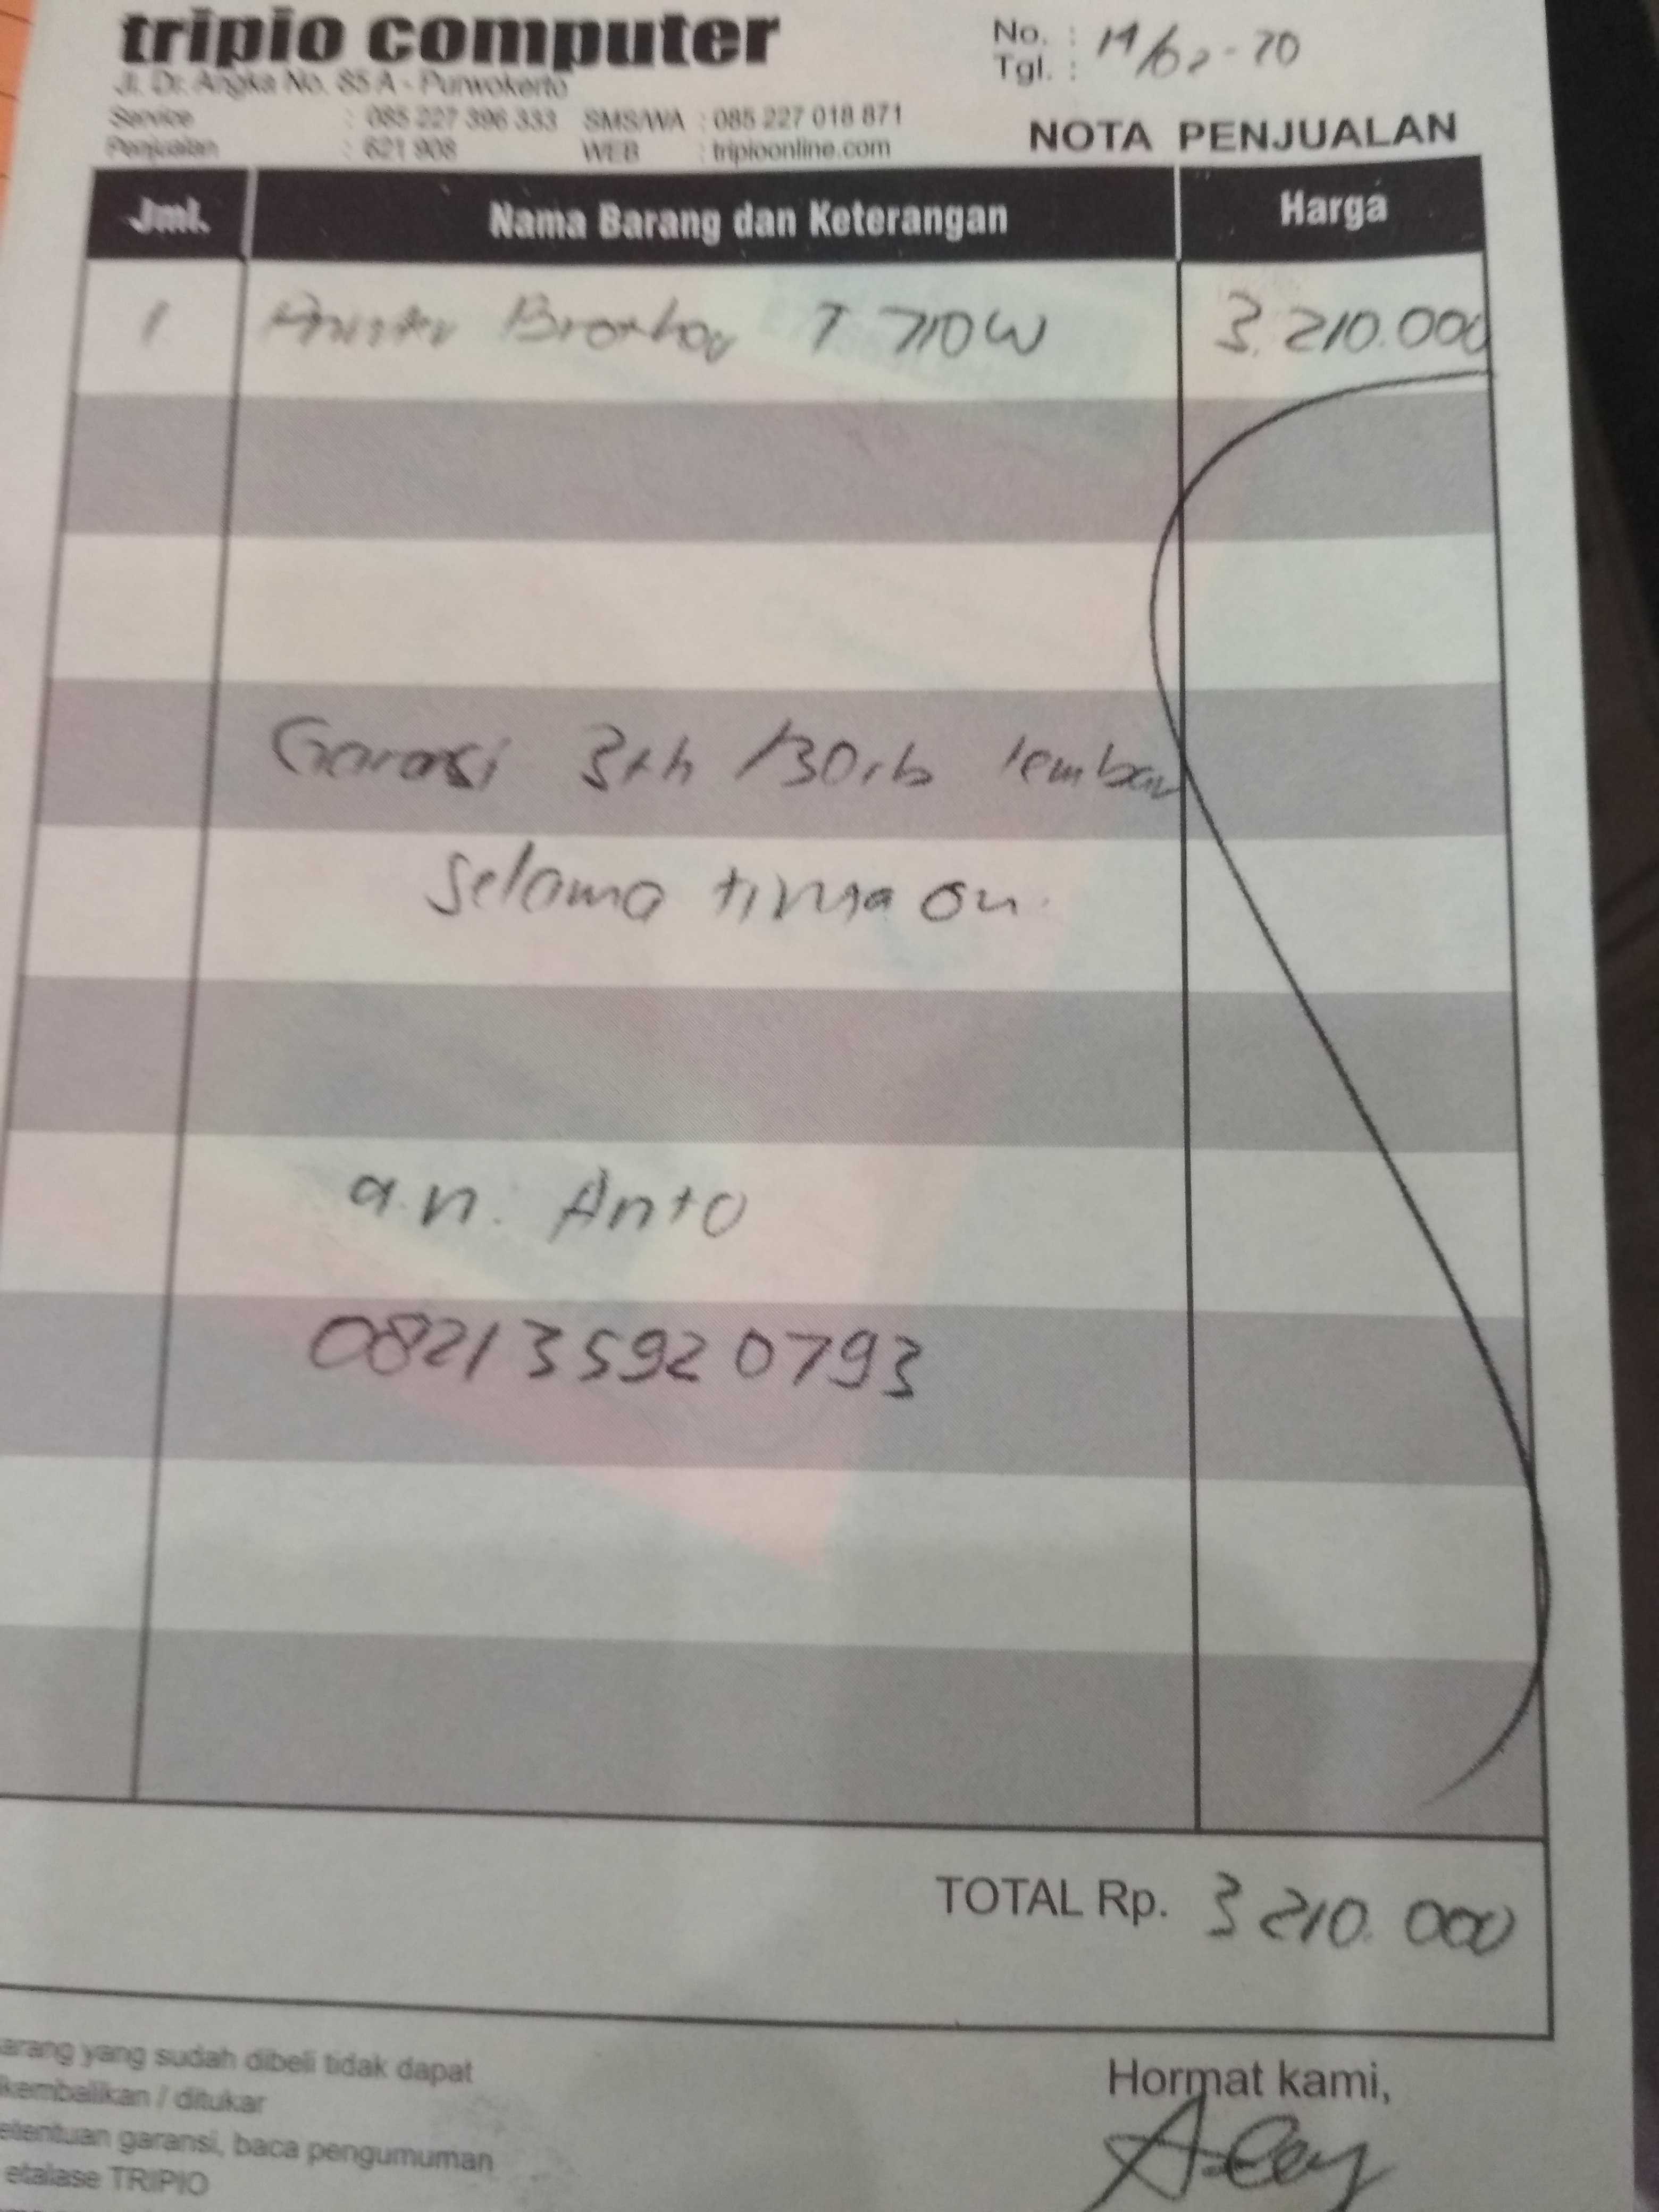 tripio computer
Jl. Dr. Angka No. 85 A - Purwokerto
Service : 085 227 396 333 SMS/WA : 085 227 018 871
Penjualan : 621 908 WEB : tripioonline.com
No. :
Tgl. : 14/02-20
NOTA PENJUALAN
Jml. Nama Barang dan Keterangan Harga
1 Printer Brother T 710W 3.210.000
Garansi 3th /30rb lembar
selama tinta ori.
a.n. Anto
082135920793
TOTAL Rp. 3 210. 000
arang yang sudah dibeli tidak dapat
kembalikan / ditukar
etentuan garansi, baca pengumuman
etalase TRIPIO
Hormat kami,